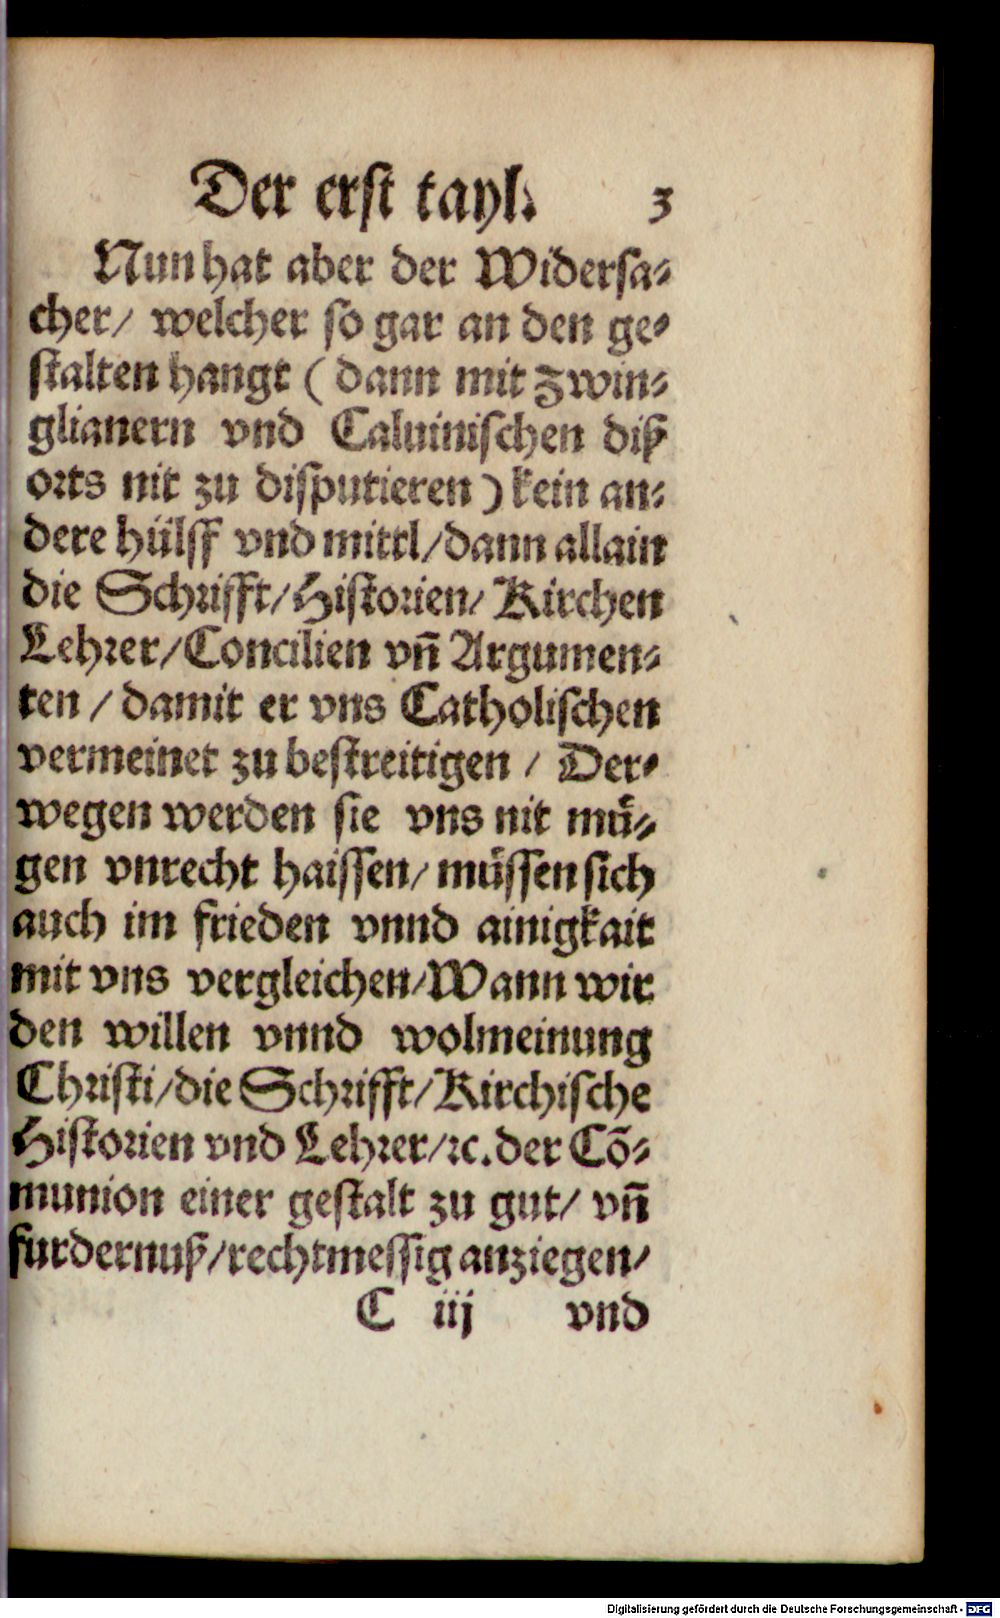 Der erst tayl. 3
Nun hat aber der Widersa⸗
cher/ welcher so gar an den ge⸗
stalten hangt (dann mit Zwin⸗
glianern vnd Caluinischen diß
orts nit zu disputieren) kein an⸗
dere hülff vnd mittl/dann allain
die Schrifft/Historien/ Kirchen
Lehrer/Concilien vñ Argumen⸗
ten / damit er vns Catholischen
vermeinet zu bestreitigen / Der⸗
wegen werden sie vns nit mü⸗
gen vnrecht haissen/ müssen sich
auch im frieden vnnd ainigkait
mit vns vergleichen/Wann wir
den willen vnnd wolmeinung
Christi/die Schrifft/Kirchische
Historien vnd Lehrer/ꝛc. der Cõ⸗
munion einer gestalt zu gut/ vñ
furdernuß/rechtmessig anziegen/
C iij vnd
Digitalisierung gefördert durch die Deutsche Forschungsgemeinschaft - DFG